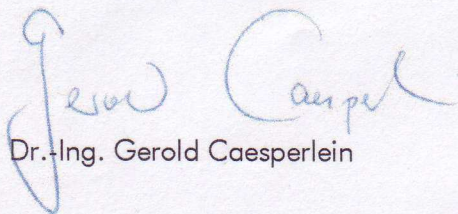 Gerold Caesperl
Dr.-Ing. Gerold Caesperlein